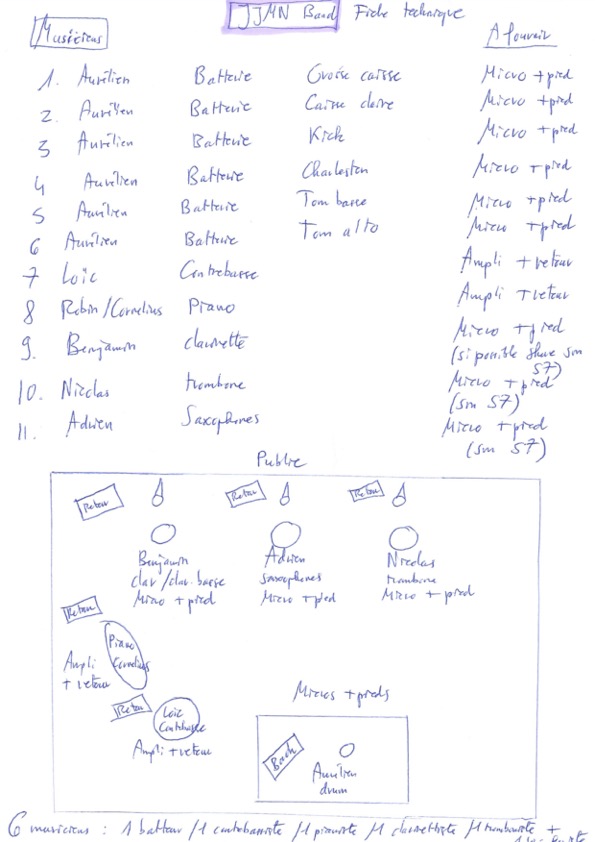 JJMN Band Fiche technique
Musiciens
A fournir
1. Aurélien Batterie Grosse caisse Micro + pied
2. Aurélien Batterie Caisse claire Micro + pied
3 Aurélien Batterie Kick Micro + pied
4 Aurélien Batterie Charleston Micro + pied
5 Aurélien Batterie Tom basse Micro + pied
6 Aurélien Batterie Tom alto Micro + pied
7 Loïc Contrebasse Ampli + retour
8 Robin/Cornelius Piano Ampli + retour
9. Benjamin clarinette Micro + pied
(si possible Shure sm 57)
10. Nicolas trombone Micro + pied
(sm 57)
11. Adrien Saxophones Micro + pied
(sm 57)
Public
Retour Retour Retour
Benjamin Adrien Nicolas
clar/clar. basse saxophones trombone
Micro + pied Micro + pied Micro + pied
Retour
Piano
Cornelius
Ampli
+ retour
Retour
Loïc
Contrebasse
Ampli + retour
Micros + pieds
Aurélien
drum
6 musiciens : 1 batteur /1 contrebassiste /1 pianiste /1 clarinettiste /1 tromboniste +